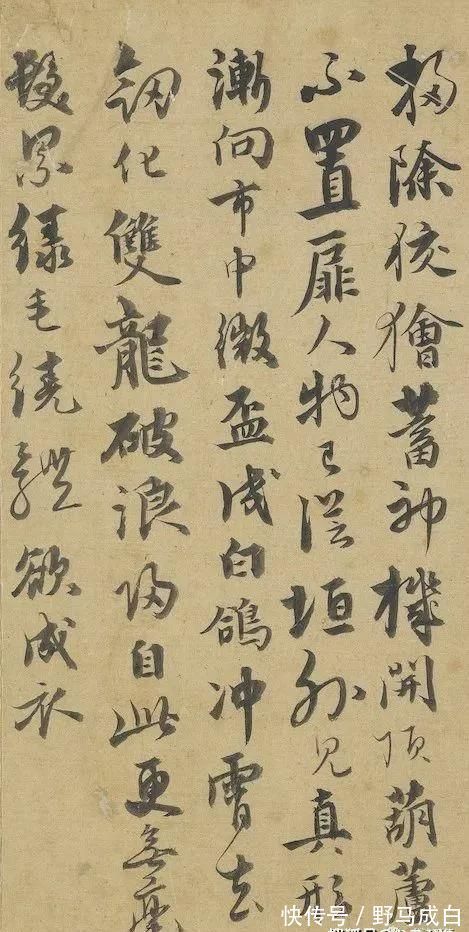 掃除狡獪蓄神機開頂葫蘆
不置扉人物已從垣外見真形
漸向市中微盃成白鴿冲霄去
劍化雙龍破浪歸自此更無
髮累綠毛繞體欲成衣
快传号 / 野马成白